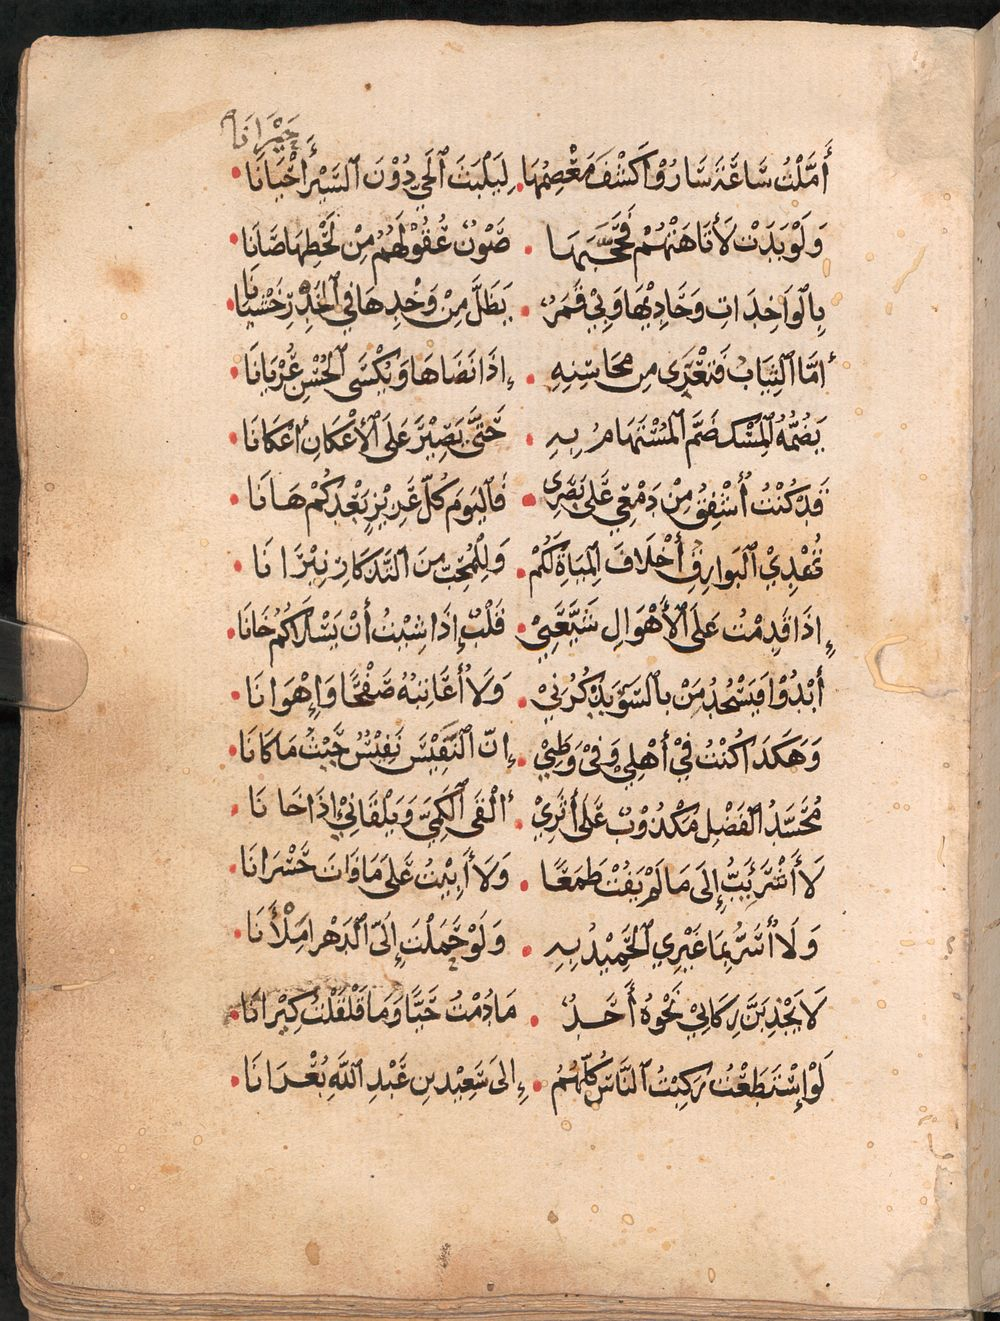 حَيْرَانَا
أَمَّلْتُ سَاعَةَ سَارُوْا كَشْفَ مَعْصِمِهَا • لِيَلْبَثَ ٱلْحَيُّ دُوْنَ ٱلسَّيْرِ أَحْيَانَا •
وَلَوْ بَدَتْ لَأَتَاهَتْهُمْ فَحَجَّبَهَا • صَوْنٌ عُقُوْلَهُمُ مِنْ لَحْظِهَا صَانَا •
بِٱلْوَاخِدَاتِ وَحَادِيْهَا وَبِيْ قَمَرٌ • يَظَلُّ مِنْ وَخْدِهَا فِي ٱلْخِدْرِ خَشْيَانَا •
أَمَّا ٱلثِّيَابُ فَتَعْرَى مِن مَحَاسِنِهِ • إِذَا نَضَاهَا وَيُكْسَى ٱلْحُسْنَ عُرْيَانَا •
يَضُمُّهُ ٱلْمِسْكُ ضَمَّ ٱلْمُسْتَهَامِ بِهِ • حَتَّى يَصِيْرَ عَلَى ٱلْأَعْكَانِ أَعْكَانَا •
قَدْ كُنْتُ أُشْفِقُ مِنْ دَمْعِي عَلَى بَصَرِى • فَٱلْيَوْمَ كُلُّ عَزِيْزٍ بَعْدَكُمْ هَانَا •
تُهْدِيْ ٱلْبَوَارِقُ أَخْلَافَ ٱلْمِيَاةِ لَكُمْ • وَلِلْمُحِبِّ مِنَ ٱلتَّذْكَارِ نِيْرَانَا •
إِذَا قَدِمْتُ عَلَى ٱلْأَهْوَالِ شَيَّعَنِيْ • قَلْبٌ إِذَا شِئْتُ أَنْ يَسْلَاكُمُ خَانَا •
أَبْدُوْا فَيَسْجُدُ مَنْ بِالسُّوْءِ يَذْكُرُنِيْ • وَلَا أُعَاتِبُهُ صَفْحًا وَإِهْوَانَا •
وَهَكَذَا كُنْتُ فِيْ أَهْلِيْ وَفِيْ وَطَنِيْ • إِنَّ ٱلنَّفِيْسَ نَفِيْسٌ حَيْثُ مَا كَانَا •
مُحَسَّدُ ٱلْفَضْلِ مَكْذُوْبٌ عَلَى أَثَرِيْ • أَلْقَى ٱلْكَمِيَّ وَيَلْقَانِيْ إِذَا حَانَا •
لَا أَشْرَئِبُّ إِلَى مَا لَمْ يَفُتْ طَمَعًا • وَلَا أَبِيْتُ عَلَى مَا فَاتَ حَسْرَانَا •
وَلَا أُسَرُّ بِمَا غَيْرِي ٱلْحَمِيْدُ بِهِ • وَلَوْ حَمَلْتَ إِلَيَّ ٱلدَّهْرَ مَلْأَنَا •
لَا يَجْذِبَنَّ رِكَابِيْ نَحْوَهُ أَحَدٌ • مَا دُمْتُ حَيًّا وَمَا قَلْقَلْنَ كِيْرَانَا •
لَوْ إِسْتَطَعْتُ رَكِبْتُ ٱلنَّاسَ كُلَّهُمُ • إِلَى سَعِيْدِ بنِ عَبْدِ ٱللَّهِ بُعْرَانَا •